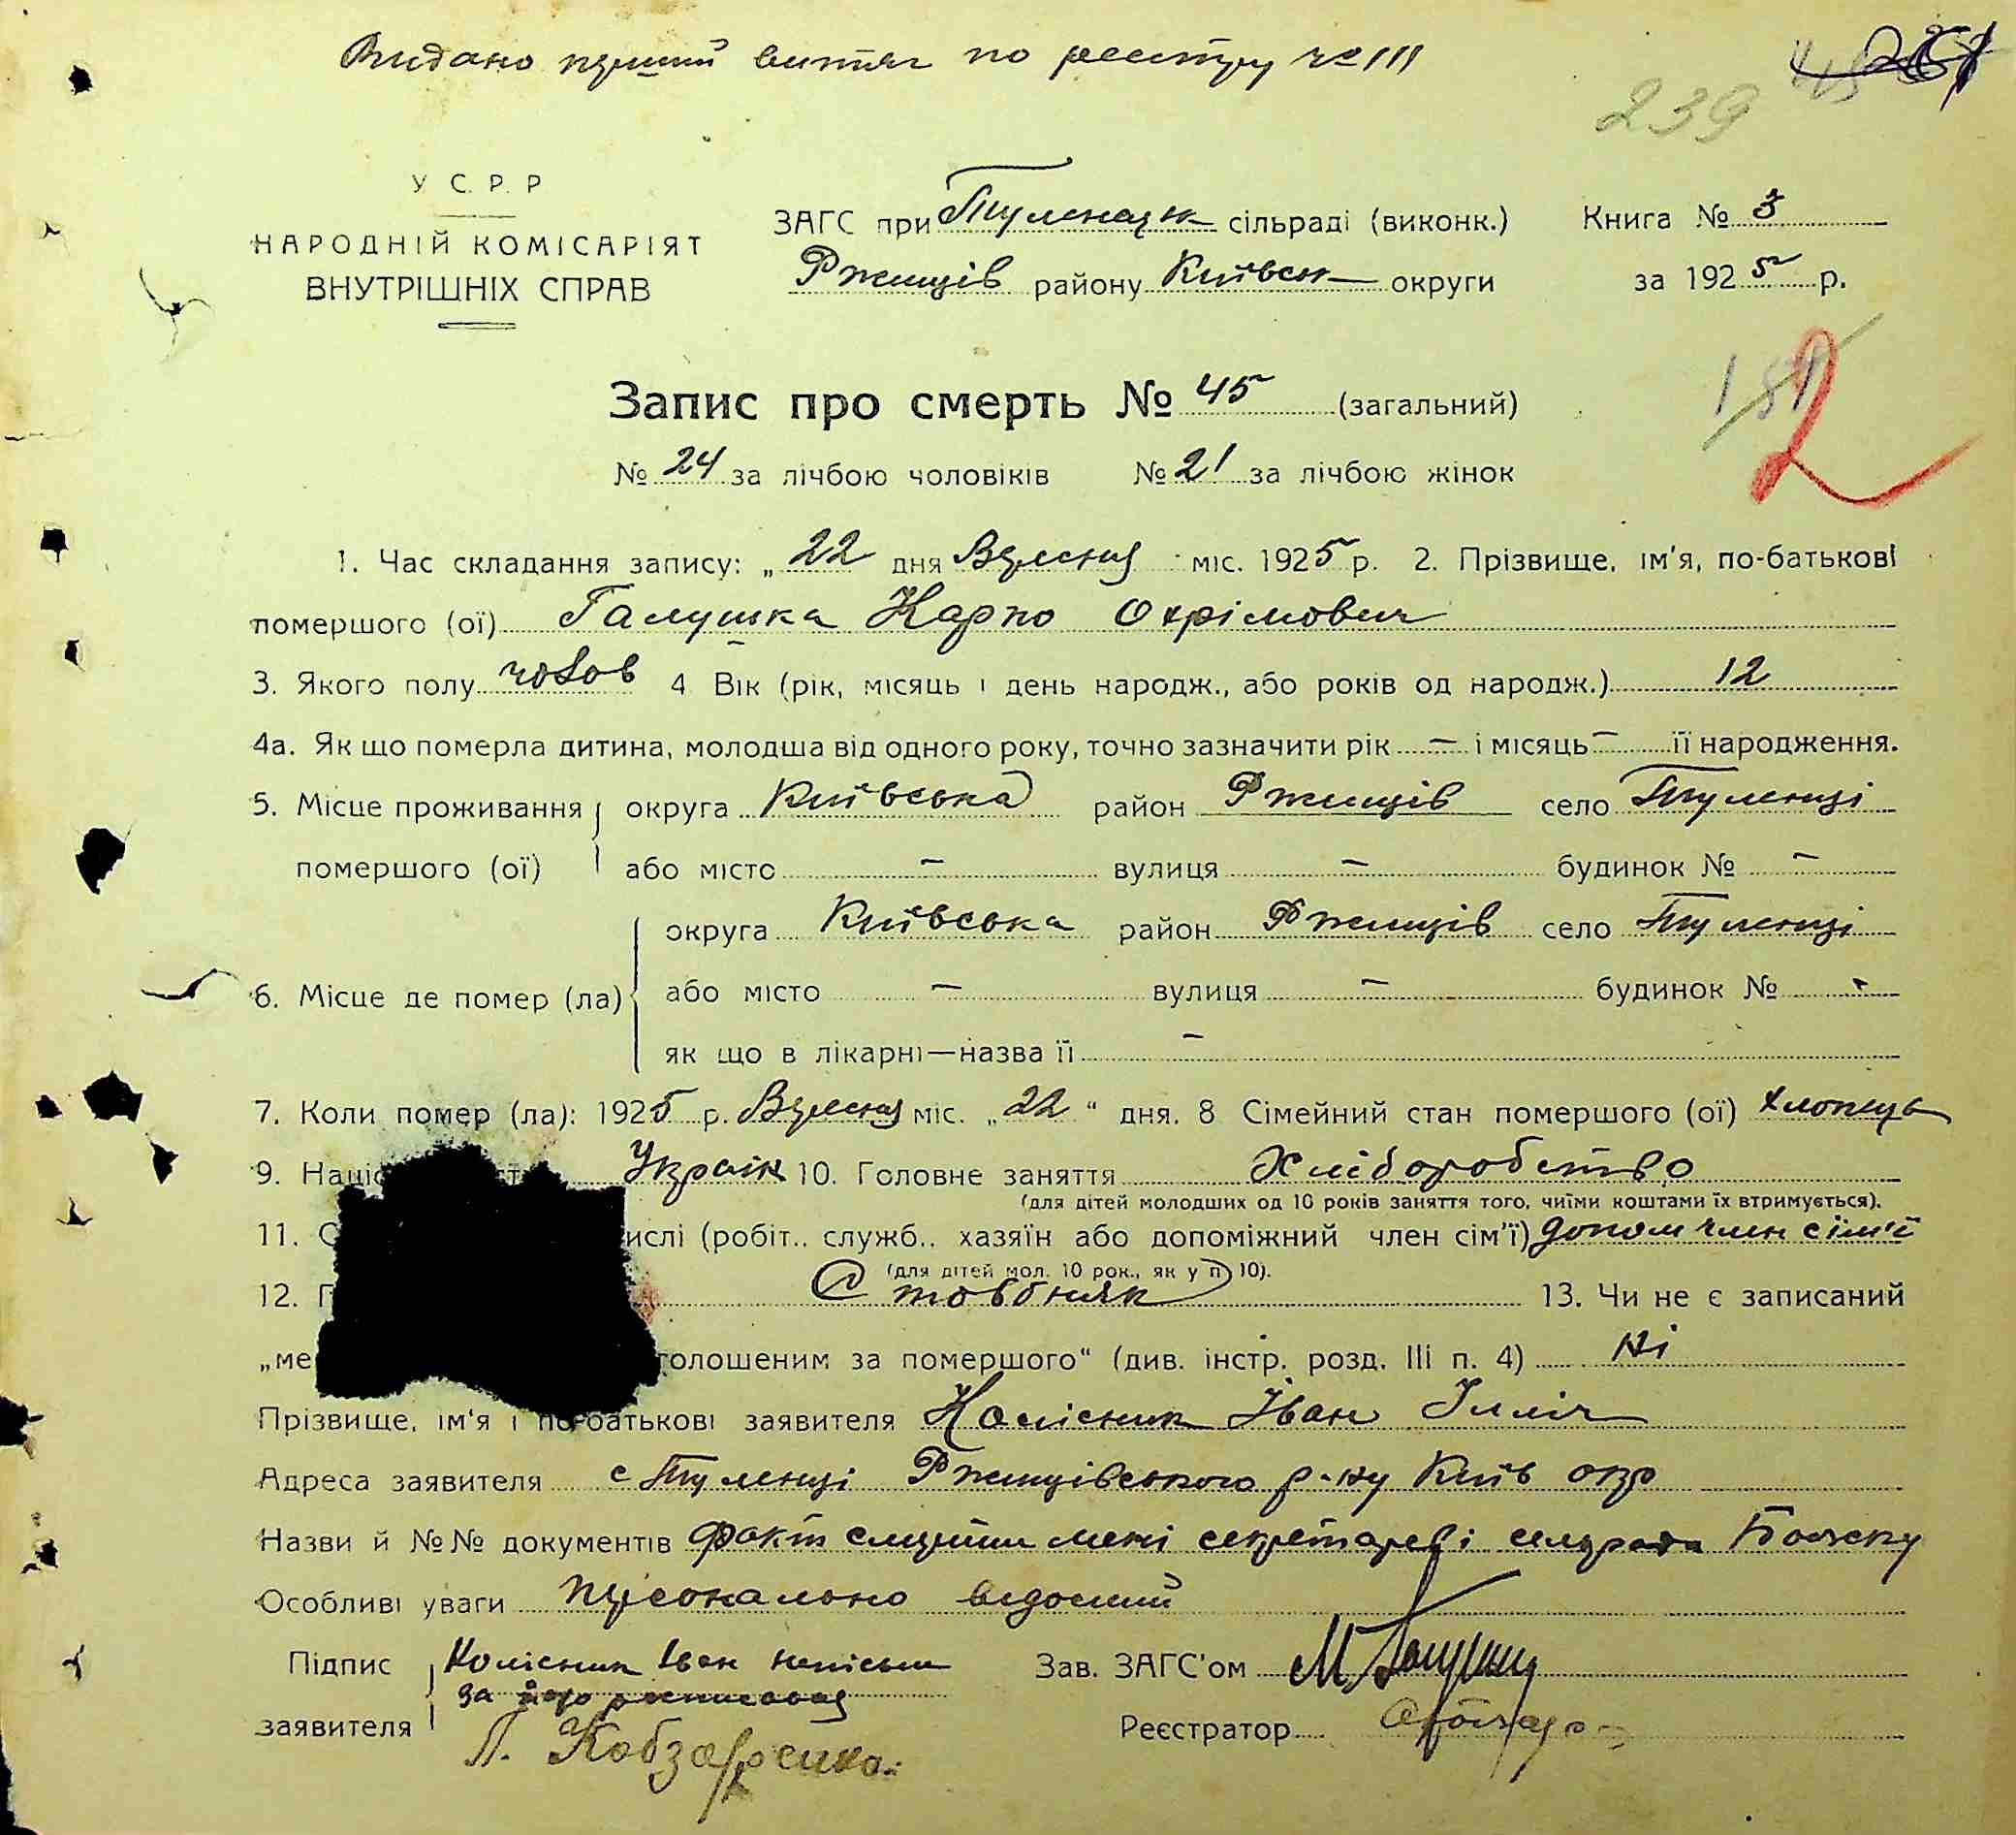 Видано перший витяг по реєстру № 111
239
У С. Р. Р
НАРОДНІЙ КОМІСАРІЯТ
ВНУТРІШНІХ СПРАВ
ЗАГС при Туленецк сільраді (виконк.) Книга № 3
Ржищів району Київськ округи за 1925 р.
Запис про смерть № 45 (загальний)
2
№ 24 за лічбою чоловіків № 21 за лічбою жінок
1. Час складання запису: „ 22 дня Вересня міс. 1925 р. 2. Прізвище, ім'я, по-батькові
помершого (ої) Галушка Карпо Охрімович
3. Якого полу чолов 4 Вік (рік, місяць і день народж., або років од народж.) 12
4а. Як що померла дитина, молодша від одного року, точно зазначити рік — і місяць — її народження.
5. Місце проживання округа Київська район Ржищів село Туленці
помершого (ої) або місто — вулиця — будинок № —
округа Київська район Ржищів село Туленці
6. Місце де помер (ла) або місто — вулиця — будинок № -
як що в лікарні—назва її —
7. Коли помер (ла): 1925 р. Вересня міс. „ 22 “ дня. 8 Сімейний стан помершого (ої) хлопець
9. Націо ст Україн 10. Головне заняття Хліборобство
(для дітей молодших од 10 років заняття того, чиїми коштами їх втримується).
11. С ислі (робіт.. служб.. хазяїн або допоміжний член сім'ї) допом член сім'ї
(для дітей мол. 10 рок., як у п 10).
12. П товбняк 13. Чи не є записаний
„ме голошеним за помершого“ (див. інстр. розд. III п. 4) Ні
Прізвище, ім'я і по-батькові заявителя Колісник Іван Ілліч
Адреса заявителя с Туленці Ржищівського р-ну Київ окр
Назви й №№ документів Факт смерти мені секретареві сельрада
Особливі уваги персонально відомий
Підпис Колісник Іван неписьм Зав. ЗАГС'ом
за його росписався
заявителя Л. Кобзаренко. Реєстратор